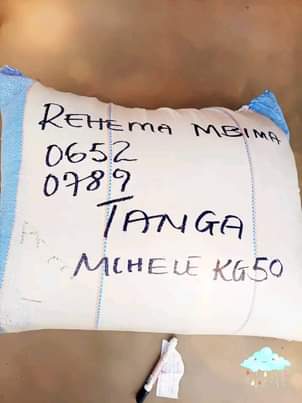 REHEMA MBIMA
0652
0789
TANGA
MCHELE KG50